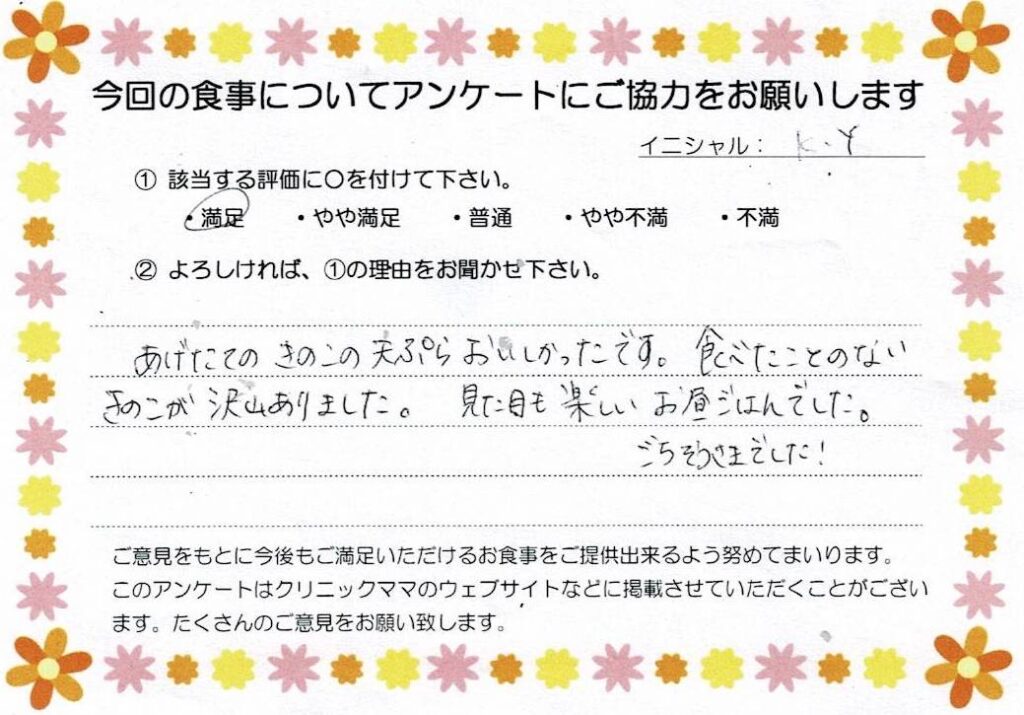 今回の食事についてアンケートにご協力をお願いします
イニシャル： K.Y
① 該当する評価に〇を付けて下さい。
・満足 ・やや満足 ・普通 ・やや不満 ・不満
② よろしければ、①の理由をお聞かせ下さい。
あげたての きのこの 天ぷら おいしかったです。 食べたことのない
きのこが 沢山ありました。 見た目も 楽しい お昼ごはんでした。
ごちそうさまでした!
ご意見をもとに今後もご満足いただけるお食事をご提供出来るよう努めてまいります。
このアンケートはクリニックママのウェブサイトなどに掲載させていただくことがござい
ます。たくさんのご意見をお願い致します。